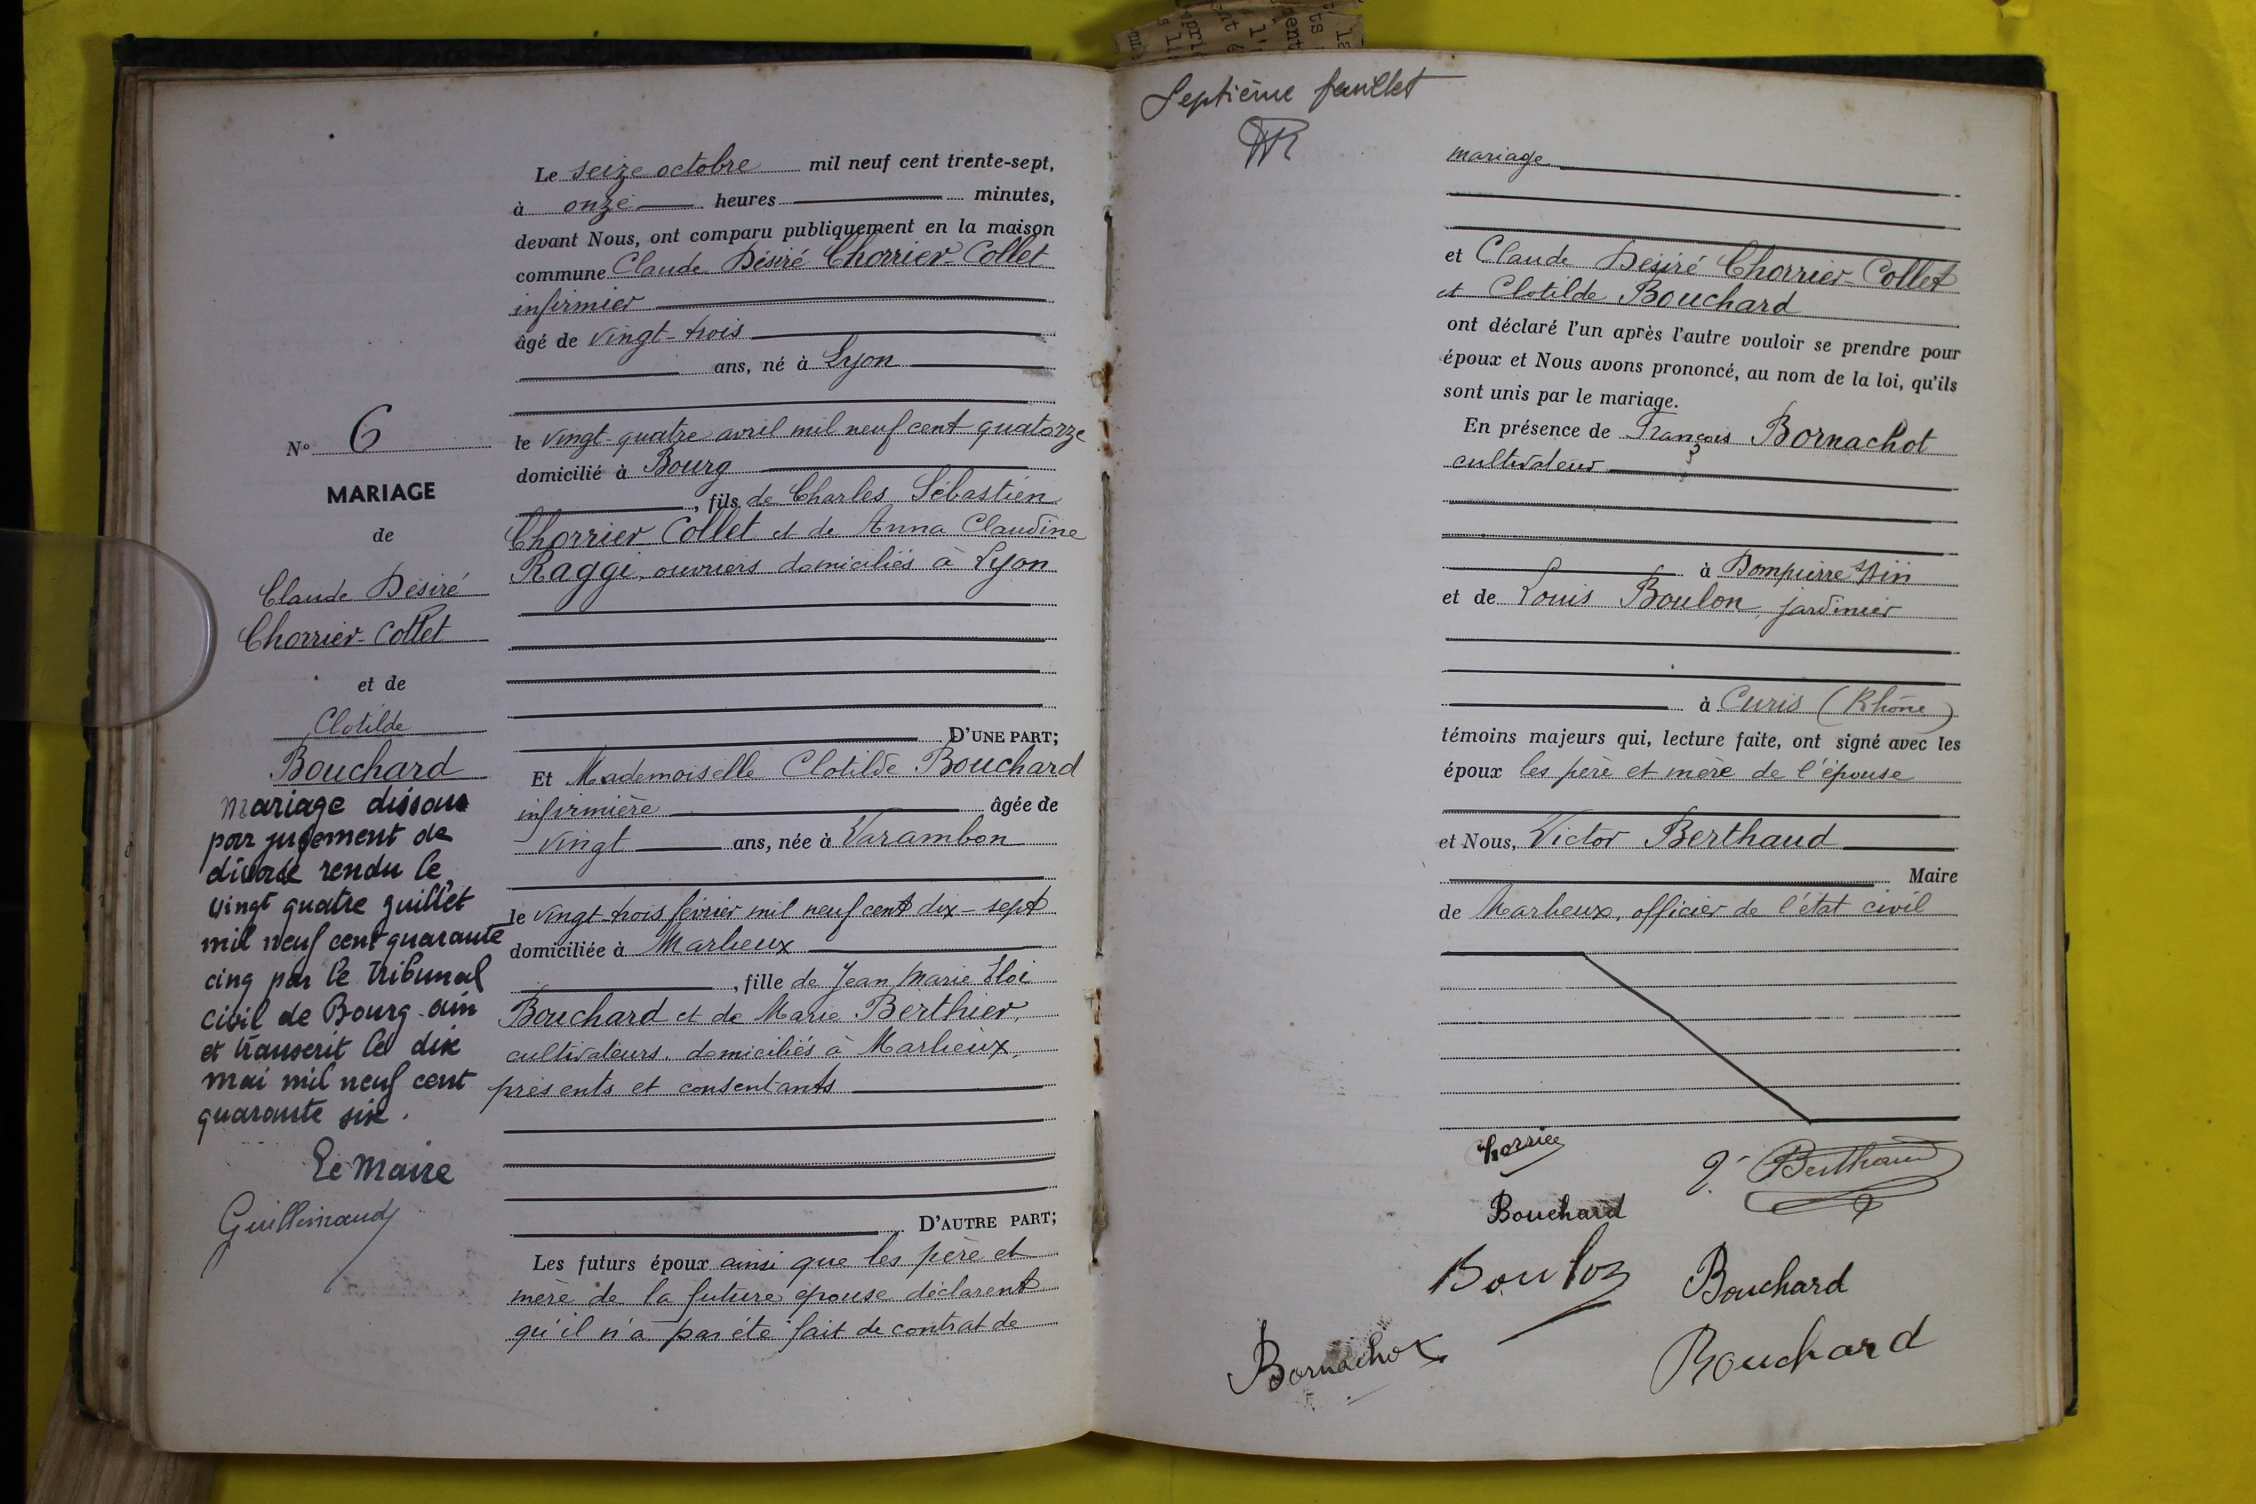 Le seize octobre mil neuf cent trente-sept,
à onze heures minutes,
devant Nous, ont comparu publiquement en la maison
commune Claude Désiré Chorrier-Collet
infirmier
âgé de vingt-trois
ans, né à Lyon
le vingt-quatre avril mil neuf cent quatorze
domicilié à Bourg
, fils de Charles Sébastien
Chorrier Collet et de Anna Claudine
Raggi, ouvriers domiciliés à Lyon
D'UNE PART;
Et Mademoiselle Clotilde Bouchard
infirmière âgée de
vingt ans, née à Varambon
le vingt-trois février mil neuf cent dix-sept
domiciliée à Marlieux
, fille de Jean Marie Eloi
Bouchard et de Marie Berthier,
cultivateurs. domiciliés à Marlieux,
présents et consentants
D'AUTRE PART;
Les futurs époux ainsi que les père et
mère de la future épouse déclarent
qu'il n'a pas été fait de contrat de
N° 6
MARIAGE
de
Claude Désiré
Chorrier-Collet
et de
Clotilde
Bouchard
Mariage dissous
par jugement de
divorce rendu le
vingt quatre juillet
mil neuf cent quarante
cinq par le Tribunal
civil de Bourg-ain
et transcrit le dix
mai mil neuf cent
quarante six.
Le Maire
Guillemaud
Septième feuillet
mariage
et Claude Désiré Chorrier-Collet
et Clotilde Bouchard
ont déclaré l'un après l'autre vouloir se prendre pour
époux et Nous avons prononcé, au nom de la loi, qu'ils
sont unis par le mariage.
En présence de François Bornachot
cultivateur
à Dompierre s/Ain
et de Louis Boulon, jardinier
à Curis (Rhône)
témoins majeurs qui, lecture faite, ont signé avec les
époux les père et mère de l'épouse
et Nous, Victor Berthaud
Maire
de Marlieux, officier de l'état civil
Chorrier
V. Berthaud
Bouchard
Boulon
Bouchard
Bornachot
Bouchard